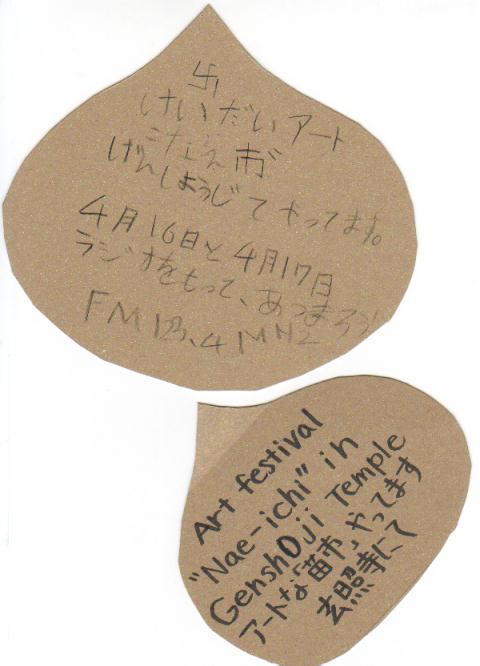 卐
けいだいアート
なえ市が
げんしょうじでやってます。
4月16日と4月17日
ラジオをもって、あつまろう!
FM 123.4MHz
Art festival
"Nae-ichi" in
GenshOji Temple
アートな「苗市」やってます
玄照寺にて